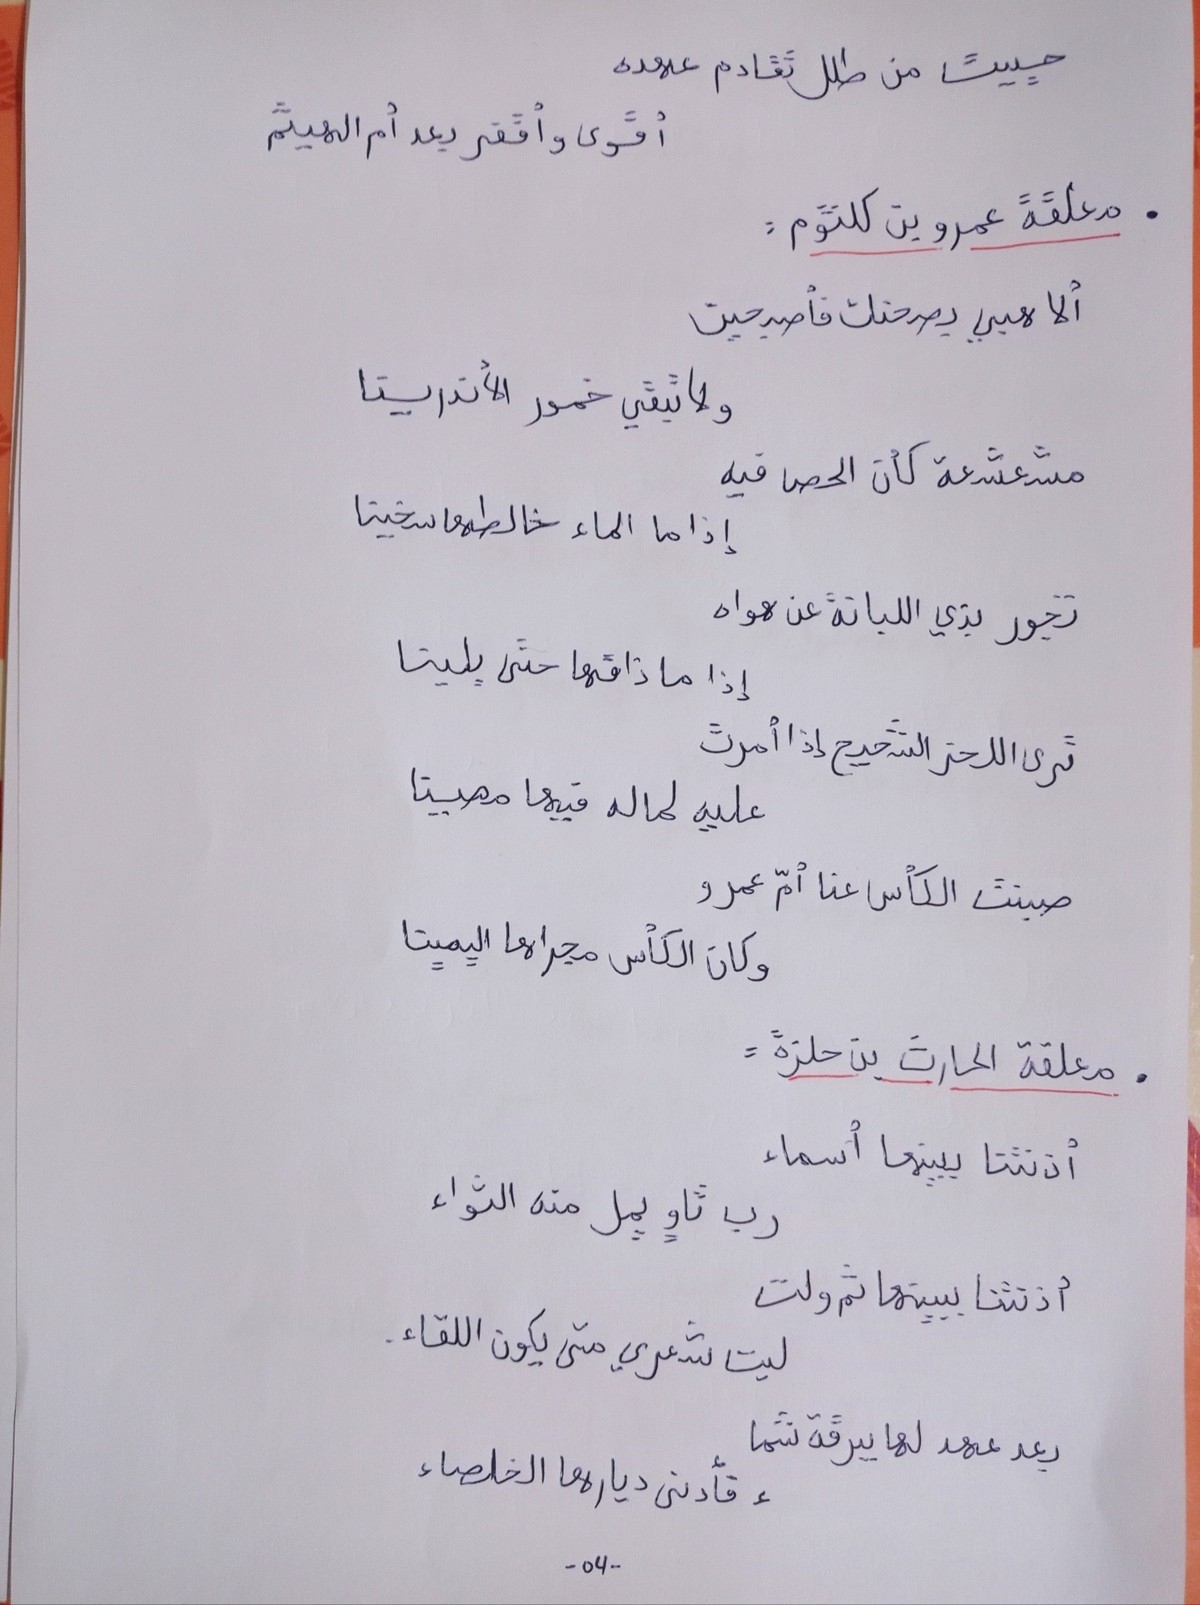 حييت من طلل تقادم عهده
أقوى وأقفر بعد أم الهيثم
• معلقة عمرو بن كلثوم :
ألا هبي بصحنك فأصبحين
ولا تبقي خمور الأندرينا
مشعشعة كأن الحصا فيه
إذا ما الماء خالطها سخينا
تجور بذي اللبانة عن هواه
إذا ما ذاقها حتى يلينا
ترى اللحز الشحيح إذا أمرت
عليه لماله فيها مهينا
صبنت الكأس عنا أمّ عمرو
وكان الكأس مجراها اليمينا
• معلقة الحارث بن حلزة :
أذنتنا ببينها أسماء
رب ثاوٍ يمل منه الثواء
أذنتنا ببينها ثم ولت
ليت شعري متى يكون اللقاء .
بعد عهد لها ببرقة شما
ء فأدنى ديارها الخلصاء
-04-